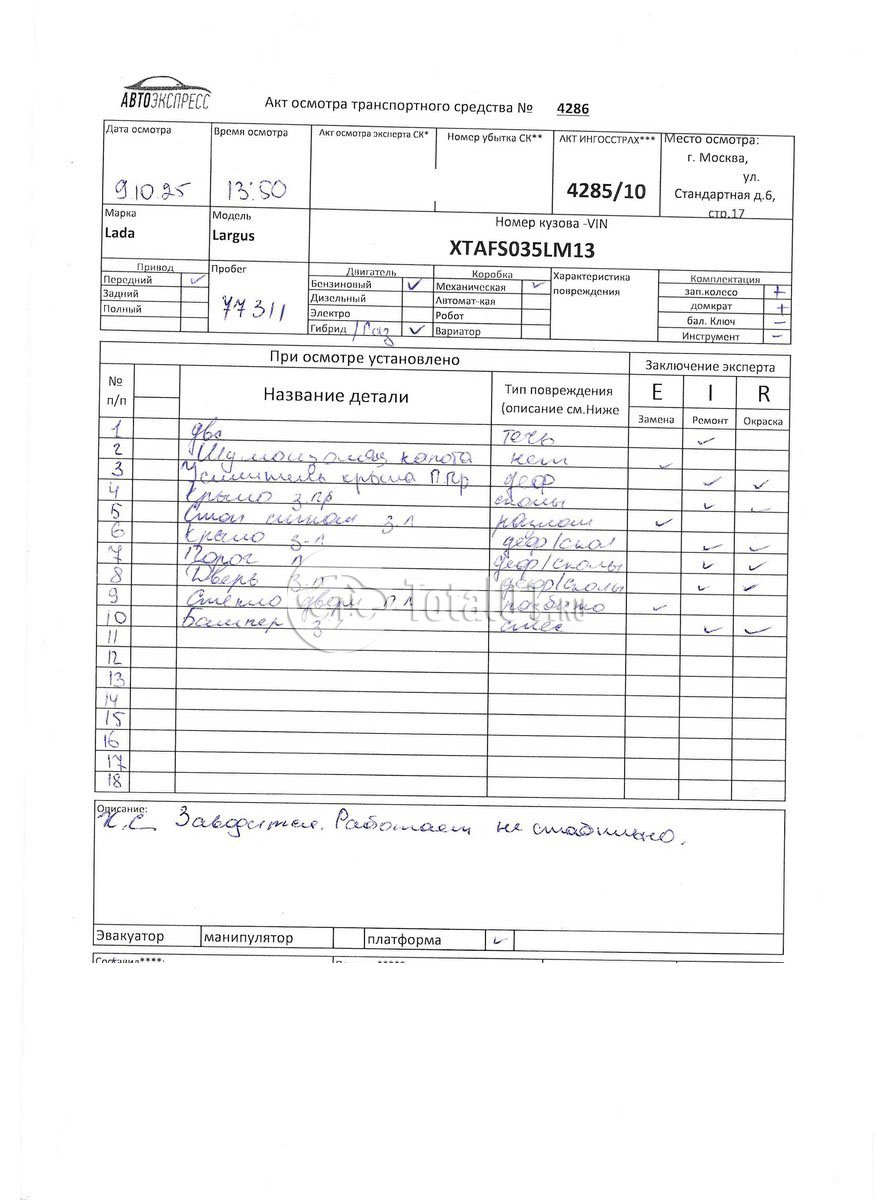 АВТОЭКСПРЕСС
Акт осмотра транспортного средства № 4286
Дата осмотра
Время осмотра
Акт осмотра эксперта СК*
Номер убытка СК**
АКТ ИНГОССТРАХ***
Место осмотра:
г. Москва,
ул.
Стандартная д.6,
стр.17
9.10.25
13:50
4285/10
Марка
Модель
Номер кузова -VIN
Lada
Largus
XTAFS035LM13
Привод
Пробег
Двигатель
Коробка
Характеристика
повреждения
Комплектация
Передний ✓
Бензиновый ✓
Механическая ✓
зап.колесо +
Задний
77311
Дизельный
Автомат-кая
домкрат +
Полный
Электро
Робот
бал. Ключ –
Гибрид /Газ ✓
Вариатор
Инструмент –
При осмотре установлено
Заключение эксперта
№
п/п
Название детали
Тип повреждения
(описание см.Ниже
E I R
Замена Ремонт Окраска
1 двс течь ✓
2 Шумоизоляц капота нет ✓
3 Усилитель крыла ППр деф ✓ ✓
4 Крыло з пр сколы ✓ ✓
5 Стоп сигнал з-л разлом ✓
6 Крыло з-л деф/скол ✓ ✓
7 Порог л деф/сколы ✓ ✓
8 Дверь з-л деф/сколы ✓ ✓
9 Стекло двери п л разбито ✓
10 Бампер з смес ✓ ✓
11
12
13
14
15
16
17
18
Total01.RU
Описание:
Н.С. Заводится. Работает не стабильно.
Эвакуатор манипулятор платформа ✓
Составил****: